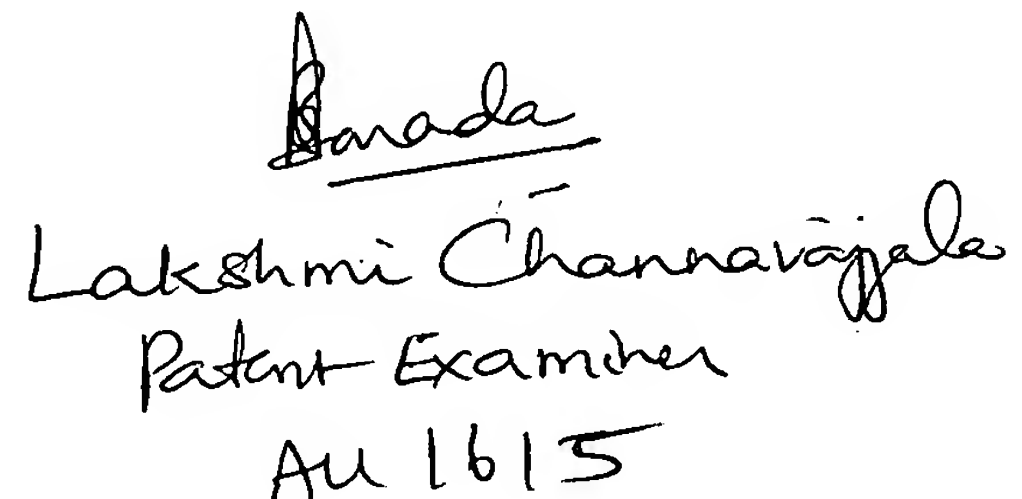 Sarada
Lakshmi Channavajjala
Patent Examiner
AU 1615